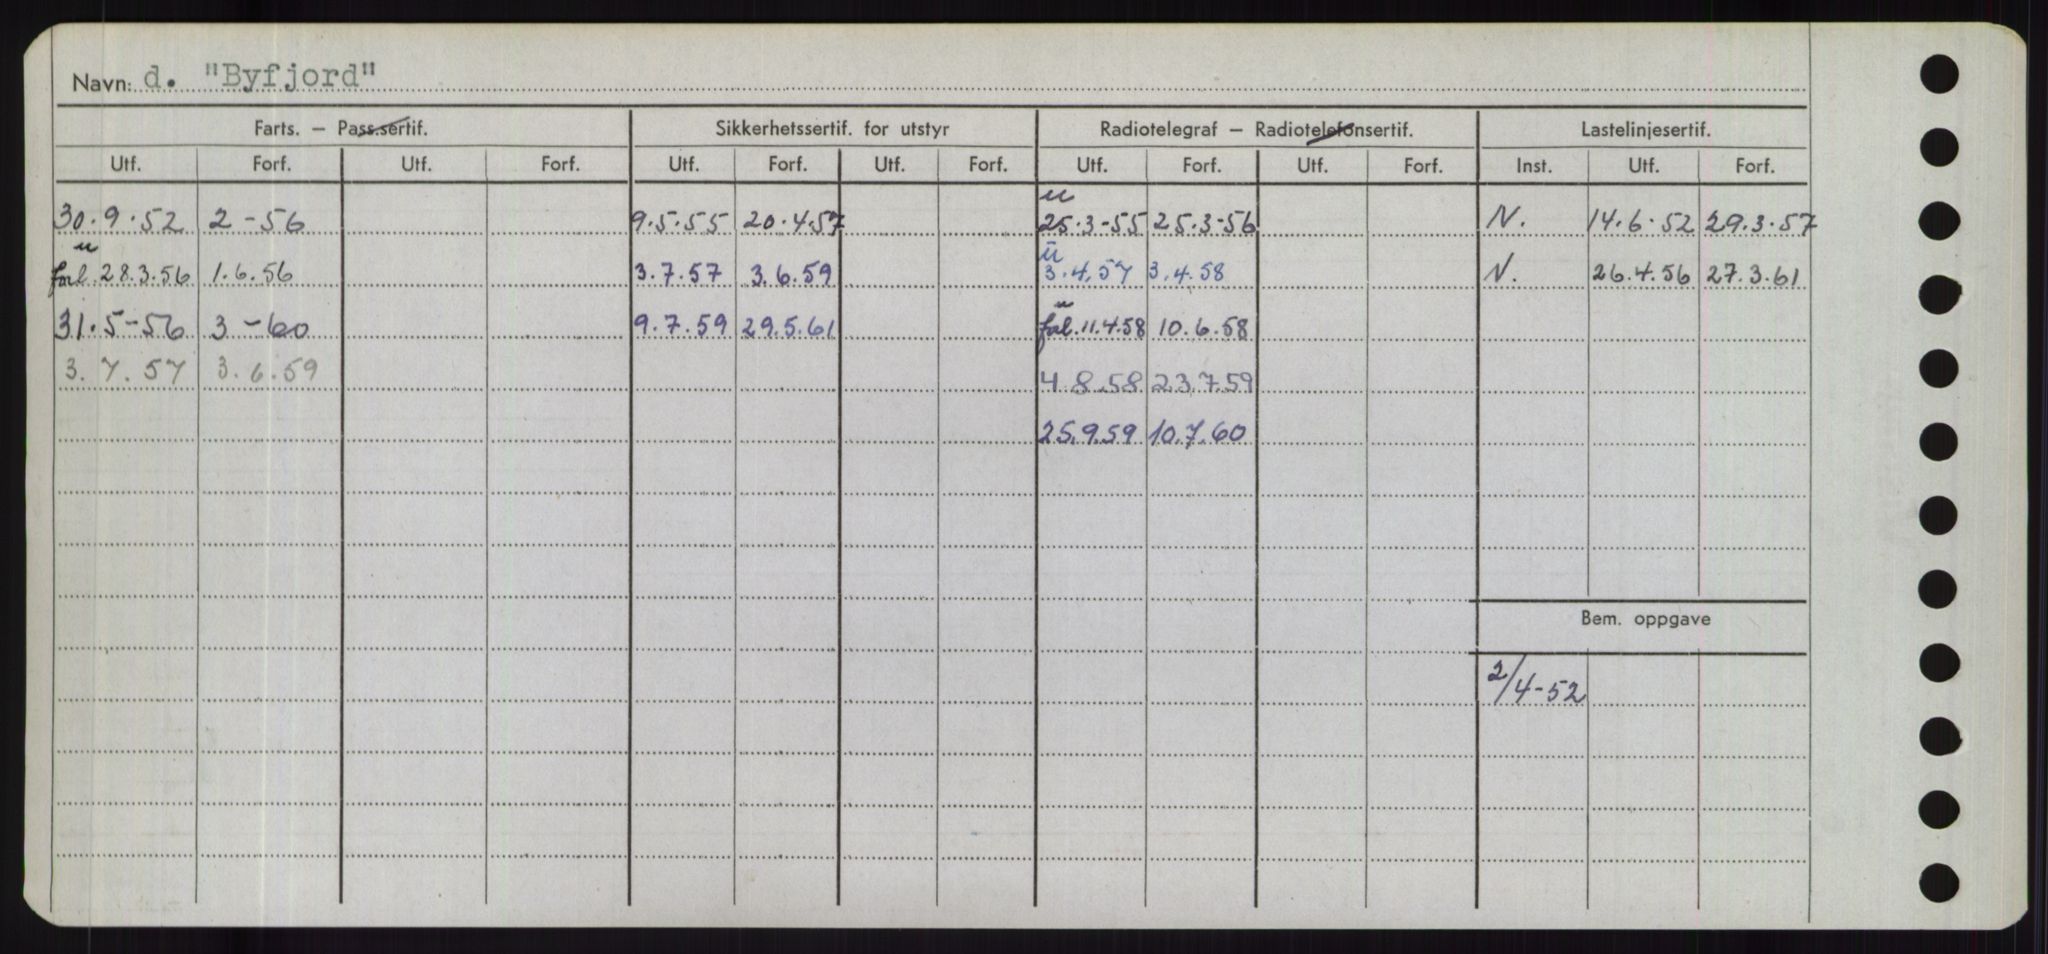 Navn: d. "Byfjord"
Farts. – Pass.sertif. Sikkerhetssertif. for utstyr Radiotelegraf – Radiotelefonsertif. Lastelinjesertif.
Utf. Forf. Utf. Forf. Utf. Forf. Utf. Forf. Utf. Forf. Utf. Forf. Inst. Utf. Forf.
u
30.9.52 2-56 9.5.55 20.4.57 25.3-55 25.3-56 N. 14.6.52 29.3.57
u ü
forl. 28.3.56 1.6.56 3.7.57 3.6.59 3.4.57 3.4.58 N. 26.4.56 27.3.61
u
31.5-56 3-60 9.7.59 29.5.61 forl. 11.4.58 10.6.58
3.7.57 3.6.59 4.8.58 23.7.59
25.9.59 10.7.60
Bem. oppgave
2/4-52